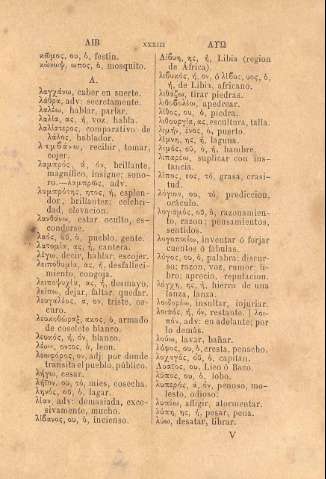 ΛΙΒ XXXIII ΛΥΩ
κῶμος, ου, ὁ, festin.
κώνωψ, ωπος, ὁ, mosquito.
Λ.
λαγχάνω, caber en suerte.
λάθρα, adv: secretamente.
λαλέω, hablar, parlar.
λαλία, ας, ἡ, voz, habla.
λαλίστερος, comparativo de
λάλος, hablador.
λαμβάνω, recibir, tomar,
cojer.
λαμπρός, ά, όν, brillante,
magnífico, insigne; sono-
ro.—λαμπρῶς, adv.
λαμπρότης, ητος, ἡ, esplen-
dor, brillantez, celebri-
dad, elevacion.
λανθάνω, estar oculto, es-
conderse.
λαός, οῦ, ὁ, pueblo, gente.
λατομία, ας, ἡ, cantera.
λέγω, decir, hablar, escojer.
λειποθυμία, ας, ἡ, desfalleci-
miento, congoja.
λειποψυχία, ας, ἡ, desmayo.
λείπω, dejar, faltar, quedar.
λευγαλέος, α, ον, tristo, os-
curo.
λευκοθώραξ, ακος, ὁ, armado
de coselete blanco.
λευκός, ή, όν, blanco.
λέων, οντος, ὁ, leon.
λεωφόρος, ον, adj: por donde
transita el pueblo, público.
λήγω, cesar.
λήϊον, ου, τό, mies, cosecha.
ληνός, οῦ, ὁ, lagar.
λίαν, adv: demasiada, exce-
sivamente, mucho.
λίβανος, ου, ὁ, incienso.
Λιβύη, ης, ἡ, Libia (region
de Africa).
λιβυκός, ή, όν, ό λίβυς, υος, ὁ,
ἡ, de Libia, africano.
λιθάζω, tirar piedras.
λιθοβολέω, apedrear.
λίθος, ου, ὁ, piedra.
λιθουργία, ας, escultura, talla.
λιμήν, ένος, ὁ, puerto.
λίμνη, ης, ἡ, laguna.
λιμός, οῦ, ὁ, ἡ, hambre.
λιπαρέω, suplicar con ins-
tancia.
λίπος, εος, τό, grasa, crasi-
tud.
λόγιον, ου, τό, prediccion,
oráculo.
λογισμός, οῦ, ὁ, razonamien-
to, razon; pensamientos,
sentidos.
λογοποιέω, inventar ó forjar
cuentos ó fábulas.
λόγος, ου, ὁ, palabra; discur-
so; razon, voz, rumor, li-
bro; aprecio, reputacion.
λόγχη, ης, ἡ, hierro de una
lanza, lanza.
λοιδορέω, insultar, injuriar.
λοιπός, ή, όν, restante. | λοι-
πόν, adv: en adelante; por
lo demás.
λούω, lavar, bañar.
λόφος, ου, ὁ, cresta, penacho.
λοχαγός, οῦ, ὁ, capitan.
Λυαῖος, ου, Lieo ó Baco.
λύκος, ου, ὁ, lobo.
λυπηρός, ά, όν, penoso, mo-
lesto, odioso.
λυπέω, afligir, atormentar.
λύπη, ης, ἡ, pesar, pena.
λύω, desatar, librar.
V